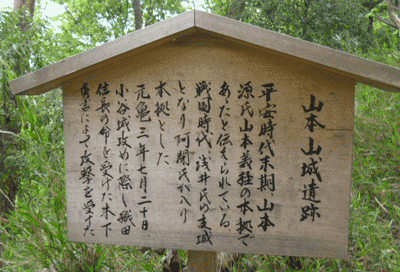 山本山城遺跡
平安時代末期、山本
源氏山本義経の本拠で
あったと伝えられている
戦国時代、浅井氏の支城
となり阿閉氏が入り
本拠とした
元亀三年七月二十日
小谷城攻めに際し織田
信長の命を受けた木下
秀吉によって攻撃を受けた